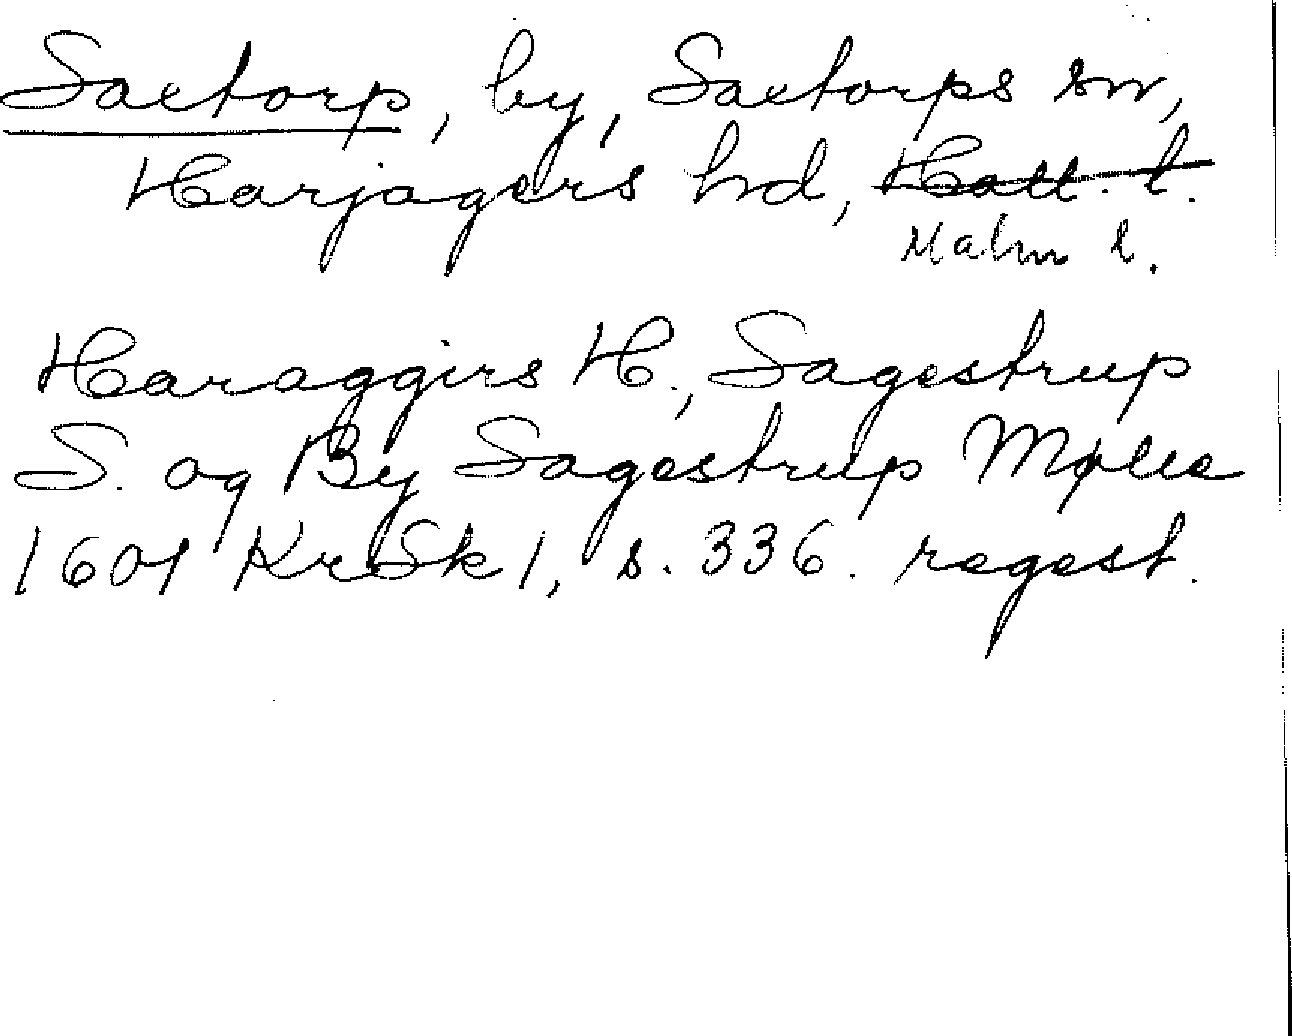 Saxtorp, by, Saxtorps sn,
Harjagers hd, Hall. l.
Malm l.
Haraggers H., Sagestrup
S. og By Sagestrup Mølle
1601 KrSk 1, s. 336. regest.